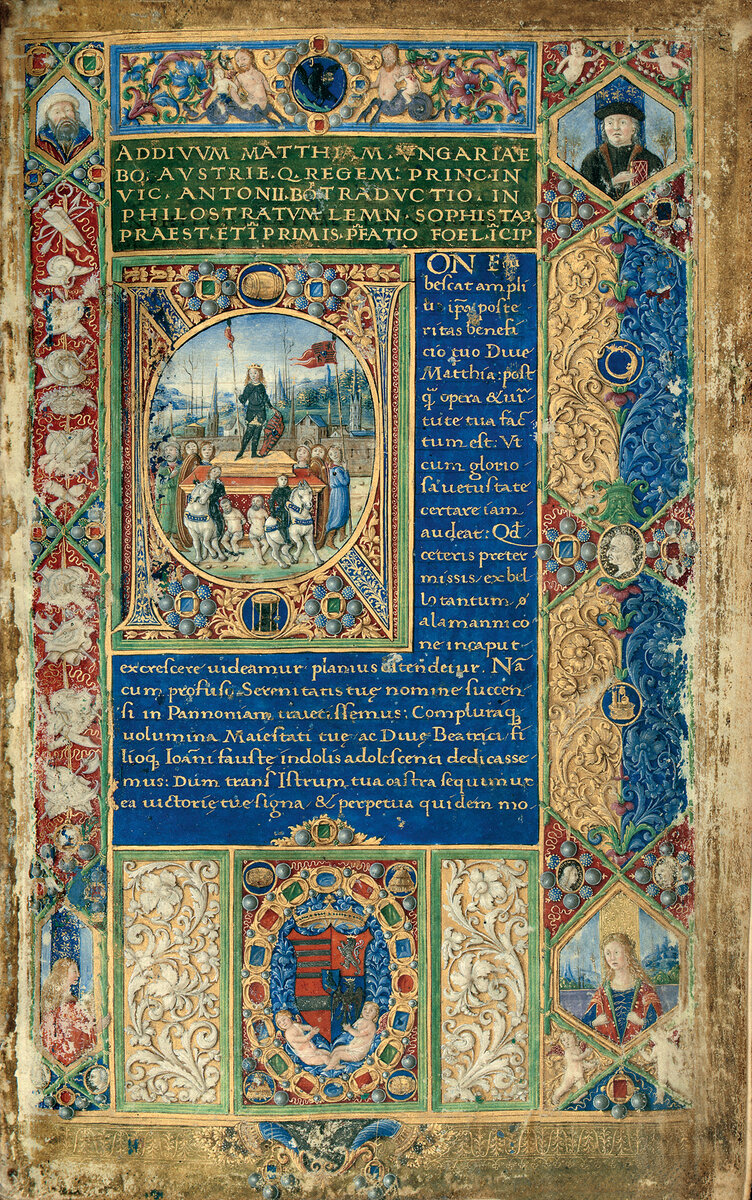 AD DIVVM MATTHIAM VNGARIAE
BOQ; AVSTRIE.Q.REGEM: PRINC.IN
VIC. ANTONII.BŌ TRADVCTIO. IN
PHILOSTRATVM LEMN. SOPHISTA
PRAEST. ET PRIMIS. P̄FATIO FOEL.ĪCIP
NON
bescat ampli
ipā poste
ritas benefi
cio tuo Diue
Matthia: post
q̄ opera & uir
tute tua fac
tum est: Vt
cum glorio
sa uetustate
certare iam
audeat: Qd̄
ceteris preter
missis / ex bel
lo tantum
alamannico
ne in caput
excrescere uideamur planius ostendetur. Nā
cum profusē Serenitatis tuę nomine succen
si in Pannoniam trauectissemus: Compluraq
uolumina Maiestati tuę ac Diuę Beatrici / fi
lioq Ioāni faustę indolis adolescenti dedicasse
mus: Dum trans Istrum tua castra sequimur
ea uictorie tue signa & perpetua quidem mo